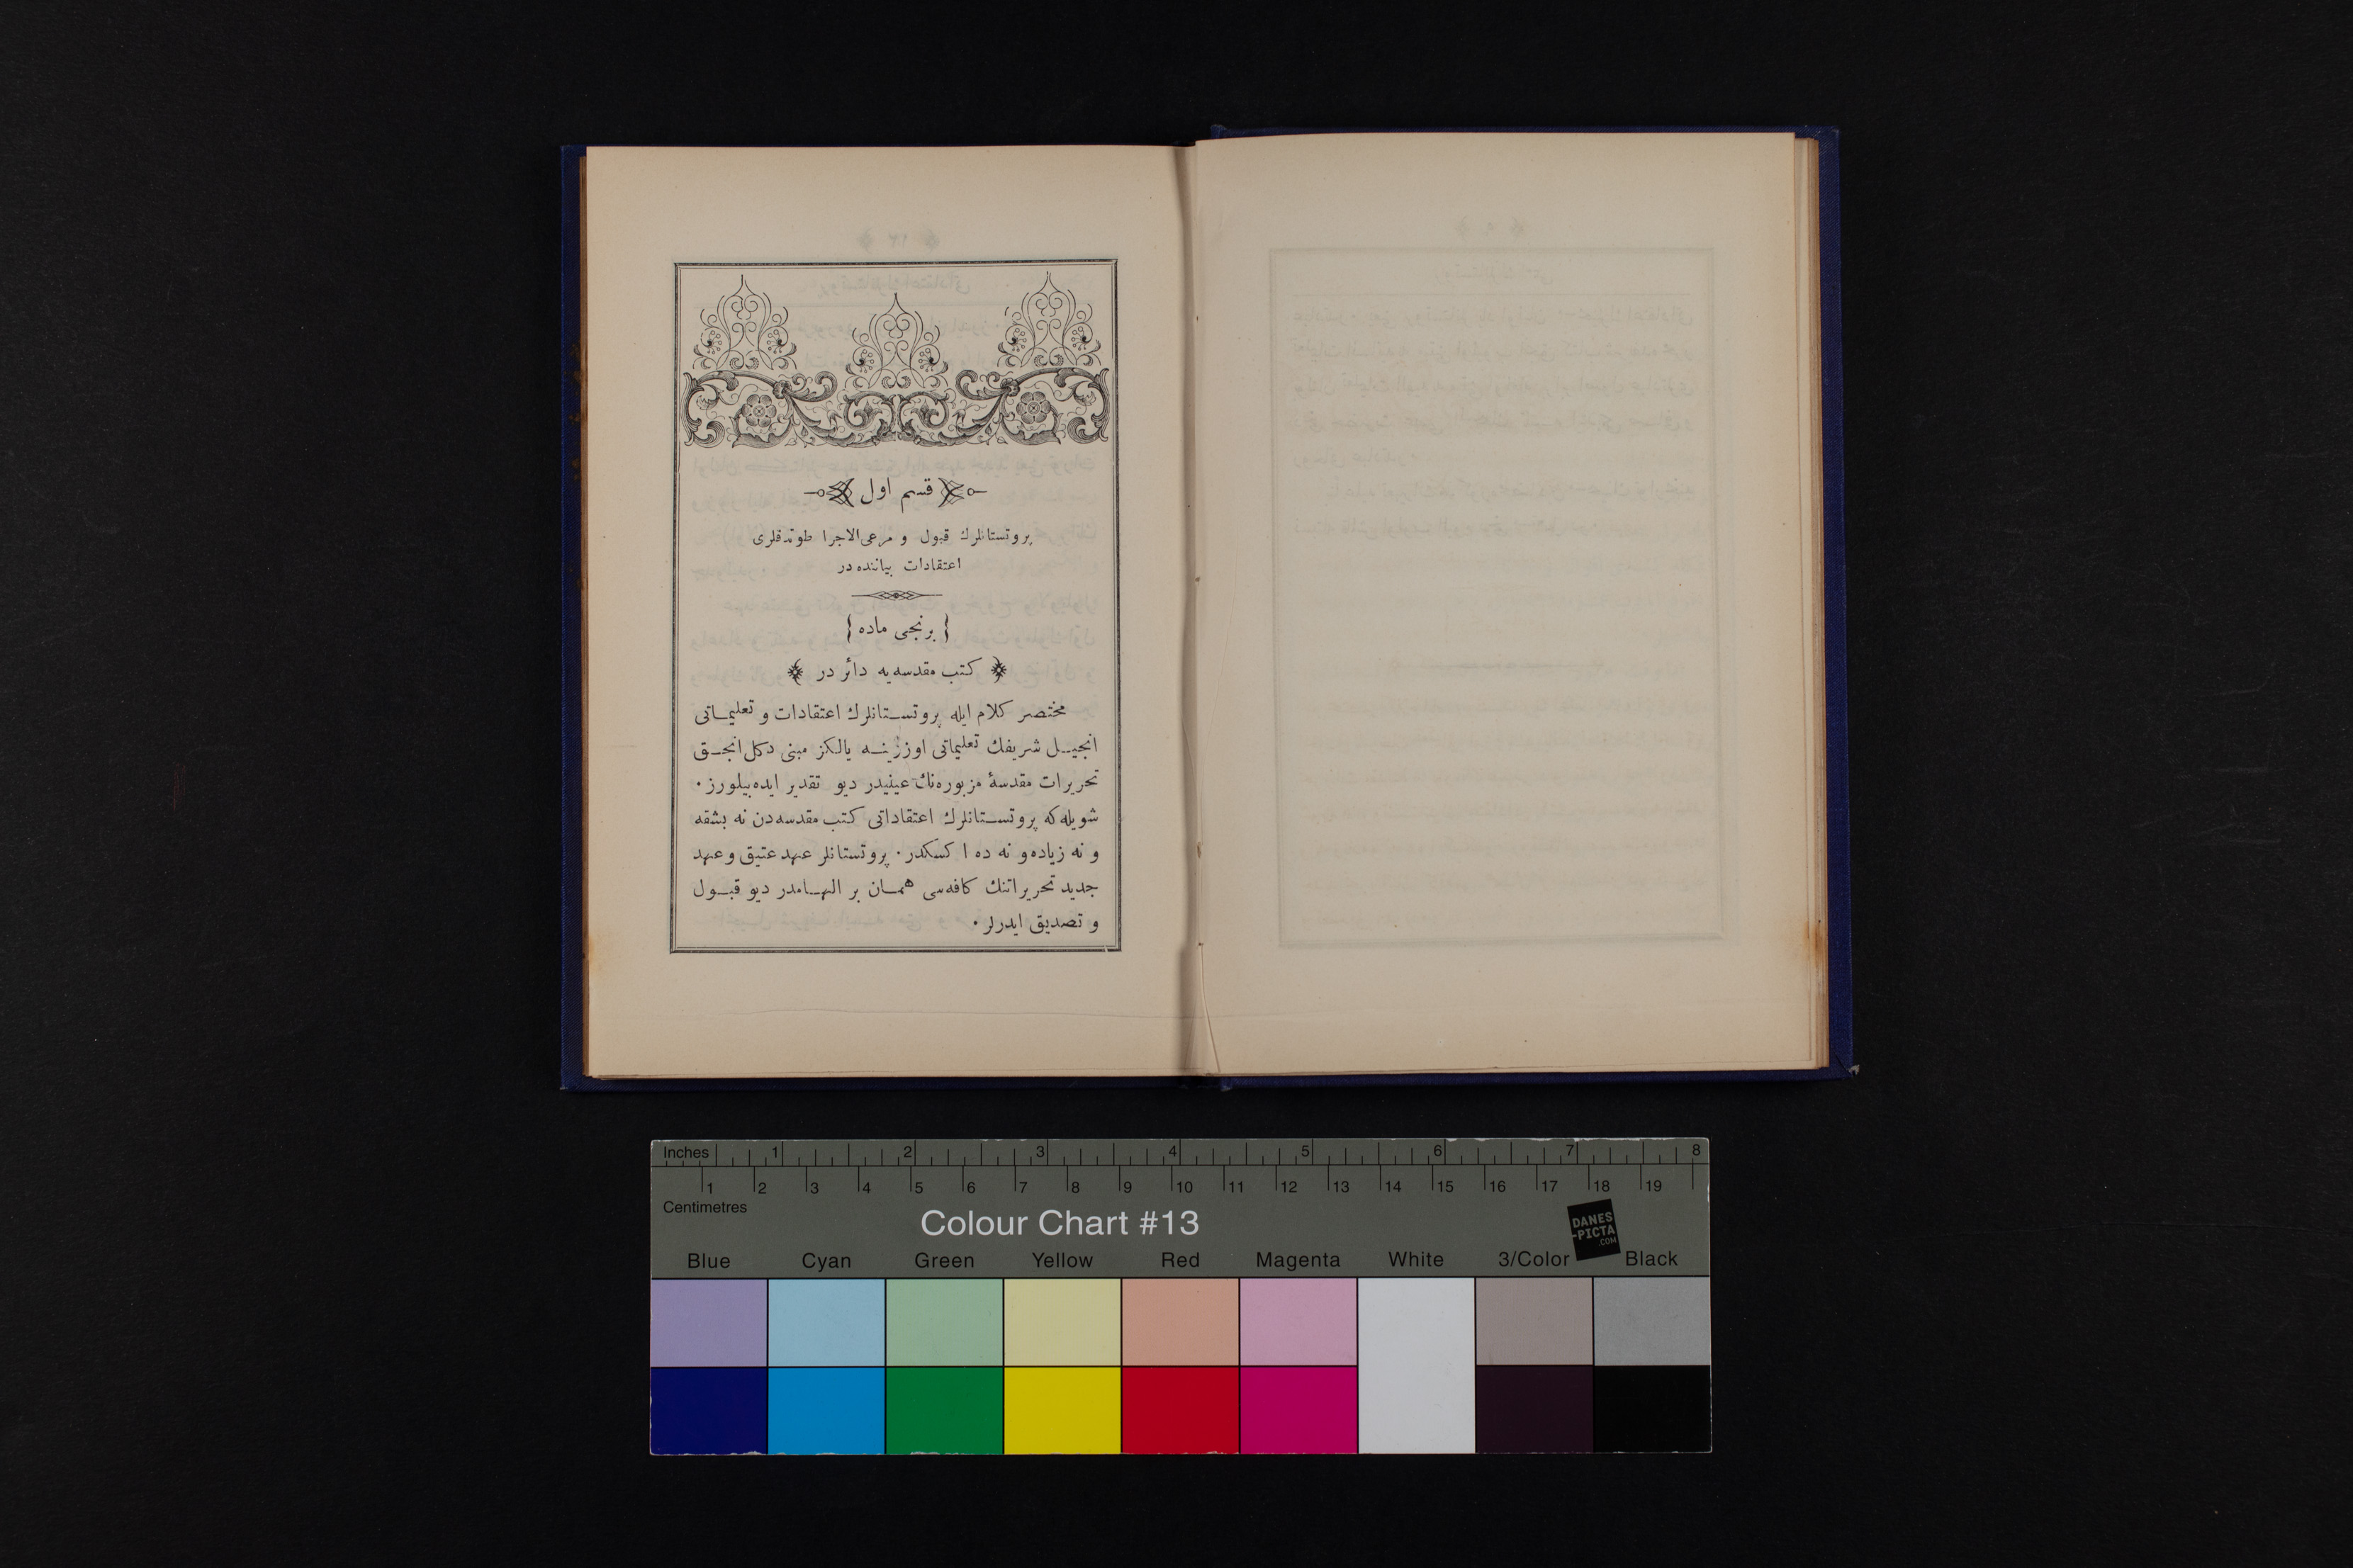 قسم اول
پروتستانلرك قبول و مرعی‌الاجرا طوتدقلری
اعتقادات بیاننده در
{ برنجی ماده }
كتب مقدسه‌یه دائر در
مختصر كلام ایله پروتستانلرك اعتقادات و تعلیماتی
انجیل شریفك تعلیماتی اوزرینه یالكز مبنی دكل انجق
تحریرات مقدسهٔ مزبوره‌نك عینیدر دیو تقدیر ایده‌بیلورز.
شویله‌كه پروتستانلرك اعتقاداتی كتب مقدسه‌دن نه بشقه
و نه زیاده و نه ده اكسكدر. پروتستانلر عهد عتیق و عهد
جدید تحریراتنك كافه‌سی همان بر الهامدر دیو قبول
و تصدیق ایدرلر.
Inches 1 2 3 4 5 6 7 8
1 2 3 4 5 6 7 8 9 10 11 12 13 14 15 16 17 18 19
Centimetres
Colour Chart #13
DANES
-PICTA
.COM
Blue Cyan Green Yellow Red Magenta White 3/Color Black